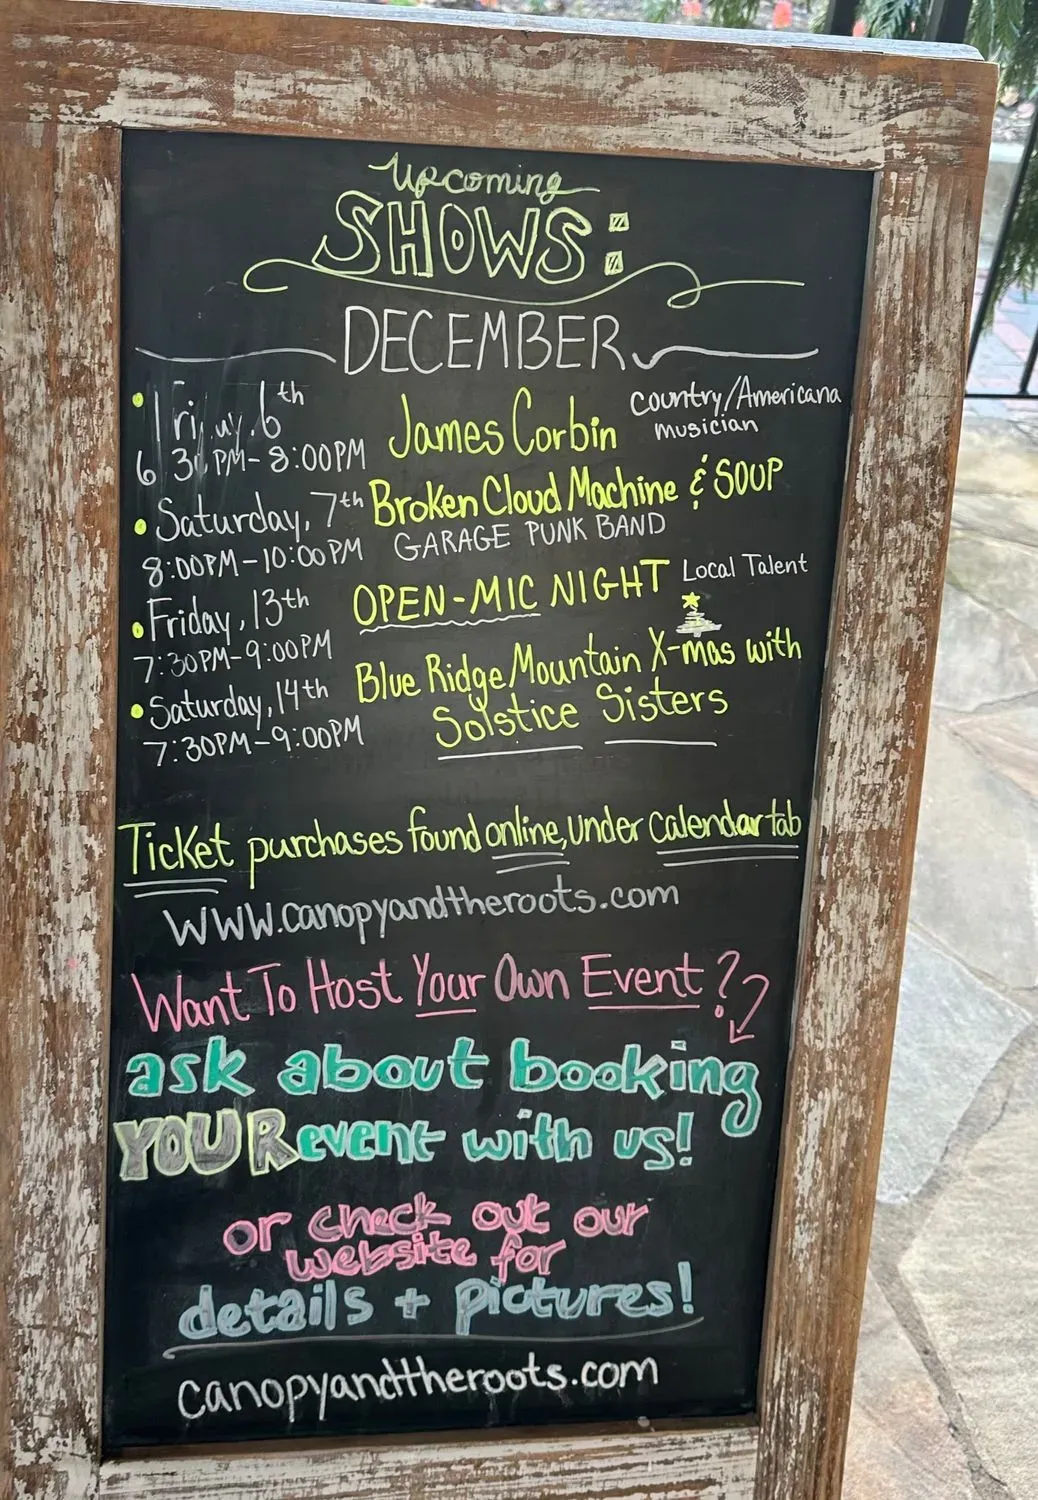 Upcoming
SHOWS:
DECEMBER
• Friday, 6th James Corbin country/Americana musician
6:30PM-8:00PM
• Saturday, 7th Broken Cloud Machine & SOUP
8:00PM-10:00PM GARAGE PUNK BAND
• Friday, 13th OPEN-MIC NIGHT Local Talent
7:30PM-9:00PM
• Saturday, 14th Blue Ridge Mountain X-mas with
7:30PM-9:00PM Solstice Sisters
Ticket purchases found online, under calendar tab
www.canopyandtheroots.com
Want To Host Your Own Event?
ask about booking
YOUR event with us!
or check out our
website for
details + pictures!
canopyandtheroots.com